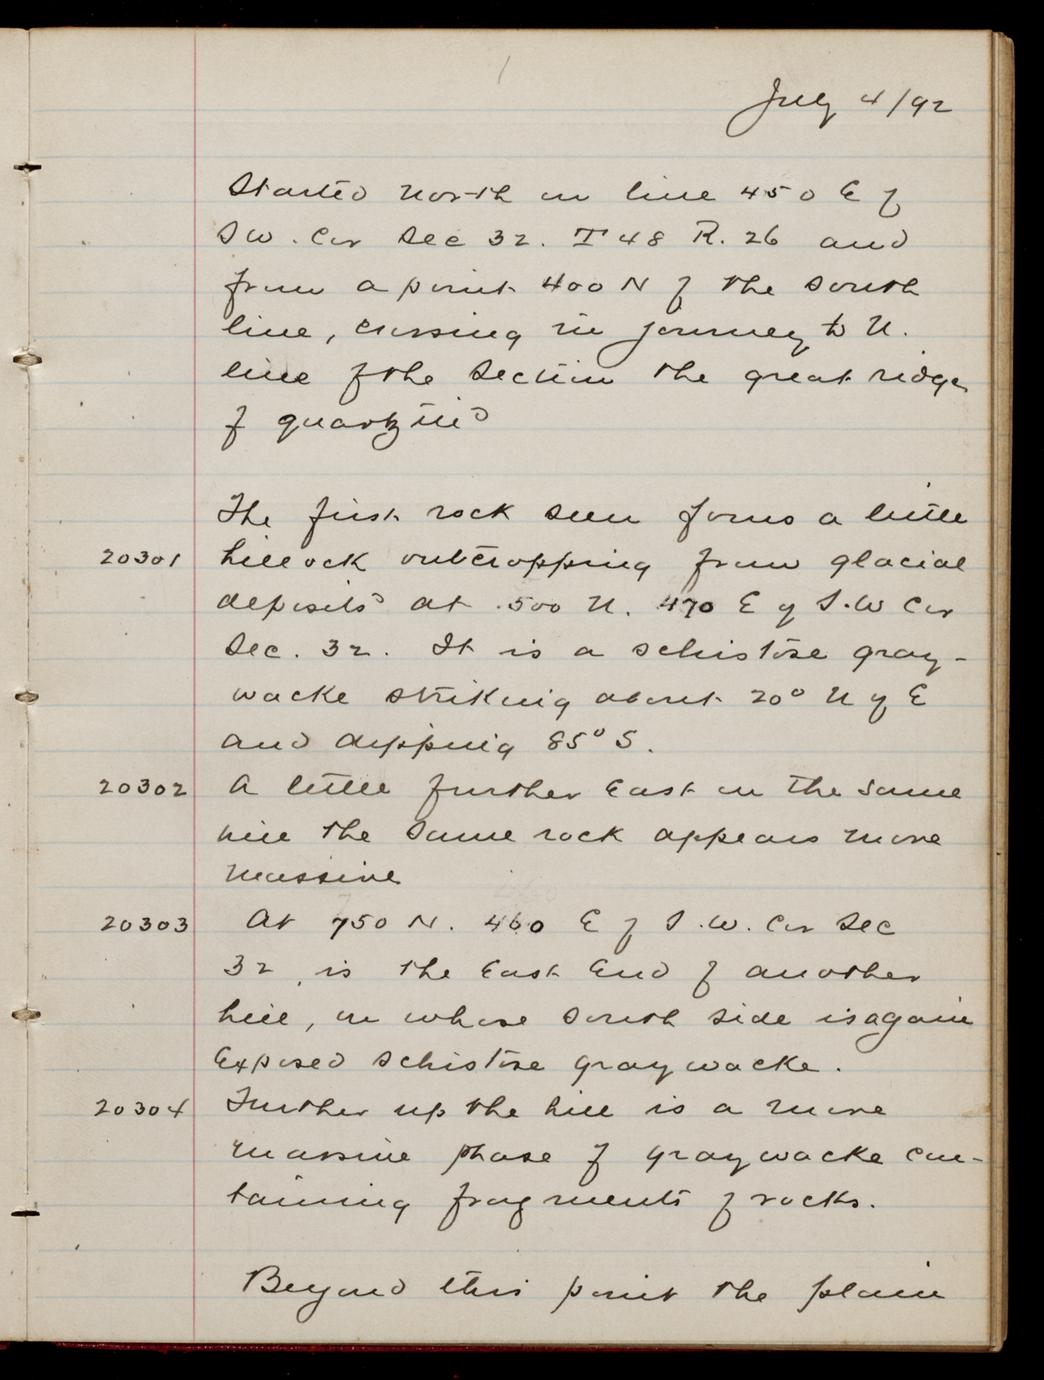 July 4/92
Started North on line 450 E of
SW. Cor Sec 32. T 48 R. 26 and
from a point 400 N of the South
line, crossing in journey to N.
line of the Section the great ridge
of quartzite
The first rock seen forms a little
20301 hillock outcropping from glacial
deposits at 500 N. 470 E of S.W Cor
Sec. 32. It is a schistose gray-
wacke striking about 20° N of E
and dipping 85° S.
20302 A little further East on the same
hill the same rock appears more
massive
20303 At 750 N. 460 E of S.W. Cor Sec
32, is the East End of another
hill, on whose South side is again
Exposed schistose graywacke.
20304 Further up the hill is a more
massive phase of graywacke con-
taining fragments of rocks.
Beyond this point the plain